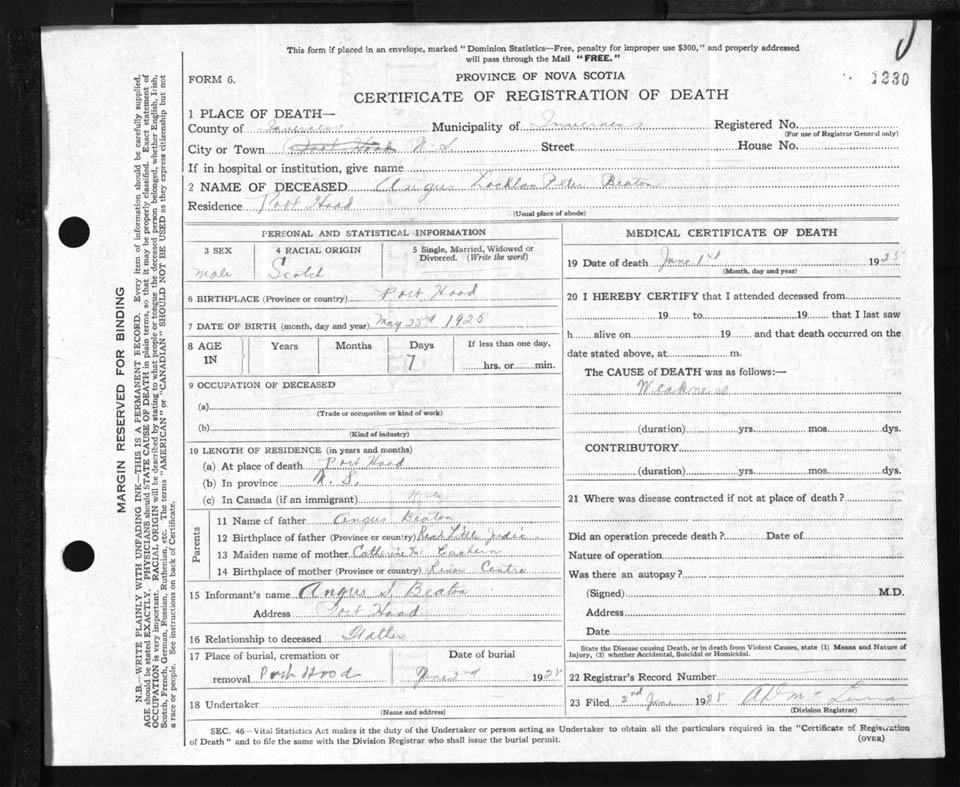 This form if placed in an envelope, marked "Dominion Statistics—Free, penalty for improper use $300," and properly addressed
will pass through the Mail "FREE."
FORM 6.
PROVINCE OF NOVA SCOTIA
1230
CERTIFICATE OF REGISTRATION OF DEATH
1 PLACE OF DEATH—
County of Inverness Municipality of Inverness Registered No.
(For use of Registrar General only)
City or Town Port Hood N.S Street House No.
If in hospital or institution, give name
2 NAME OF DECEASED Angus Lochlan Peter Beaton
Residence Port Hood
(Usual place of abode)
PERSONAL AND STATISTICAL INFORMATION
3 SEX 4 RACIAL ORIGIN 5 Single, Married, Widowed or
Divorced. (Write the word)
male Scotch
6 BIRTHPLACE (Province or country) Port Hood
7 DATE OF BIRTH (month, day and year) May 23rd 1928
8 AGE Years Months Days If less than one day,
IN 7 hrs. or min.
9 OCCUPATION OF DECEASED
(a)
(Trade or occupation or kind of work)
(b)
(Kind of industry)
10 LENGTH OF RESIDENCE (in years and months)
(a) At place of death Port Hood
(b) In province N.S.
(c) In Canada (if an immigrant)
Parents
11 Name of father Angus Beaton
12 Birthplace of father (Province or country) Rear Little Judic
13 Maiden name of mother Catherine Mc Eachern
14 Birthplace of mother (Province or country) River Centre
15 Informant's name Angus S. Beaton
Address Port Hood
16 Relationship to deceased Father
17 Place of burial, cremation or Date of burial
removal Port Hood June 2nd 1928
18 Undertaker
(Name and address)
MEDICAL CERTIFICATE OF DEATH
19 Date of death June 1st 1928
(Month, day and year)
20 I HEREBY CERTIFY that I attended deceased from
19 to 19 that I last saw
h alive on 19 and that death occurred on the
date stated above, at m.
The CAUSE of DEATH was as follows:—
Weakness
(duration) yrs. mos. dys.
CONTRIBUTORY
(duration) yrs. mos. dys.
21 Where was disease contracted if not at place of death?
Did an operation precede death? Date of
Nature of operation
Was there an autopsy?
(Signed) M.D.
Address
Date
State the Disease causing Death, or in death from Violent Causes, state (1) Means and Nature of
Injury, (2) whether Accidental, Suicidal or Homicidal.
22 Registrar's Record Number
23 Filed 2nd June 1928
(Division Registrar)
SEC. 46—Vital Statistics Act makes it the duty of the Undertaker or person acting as Undertaker to obtain all the particulars required in the "Certificate of Registration
of Death" and to file the same with the Division Registrar who shall issue the burial permit.
(OVER)
MARGIN RESERVED FOR BINDING
N.B.—WRITE PLAINLY WITH UNFADING INK—THIS IS A PERMANENT RECORD. Every item of information should be carefully supplied.
AGE should be stated EXACTLY. PHYSICIANS should STATE CAUSE OF DEATH in plain terms, so that it may be properly classified. Exact statement of
OCCUPATION is very important. RACIAL ORIGIN will be described by stating to what people or tongue the deceased person belonged, whether English, Irish,
Scotch, French, German, Russian, Ruthenian, etc. The terms "AMERICAN" or "CANADIAN" SHOULD NOT BE USED as they express citizenship but not
a race or people. See instructions on back of Certificate.